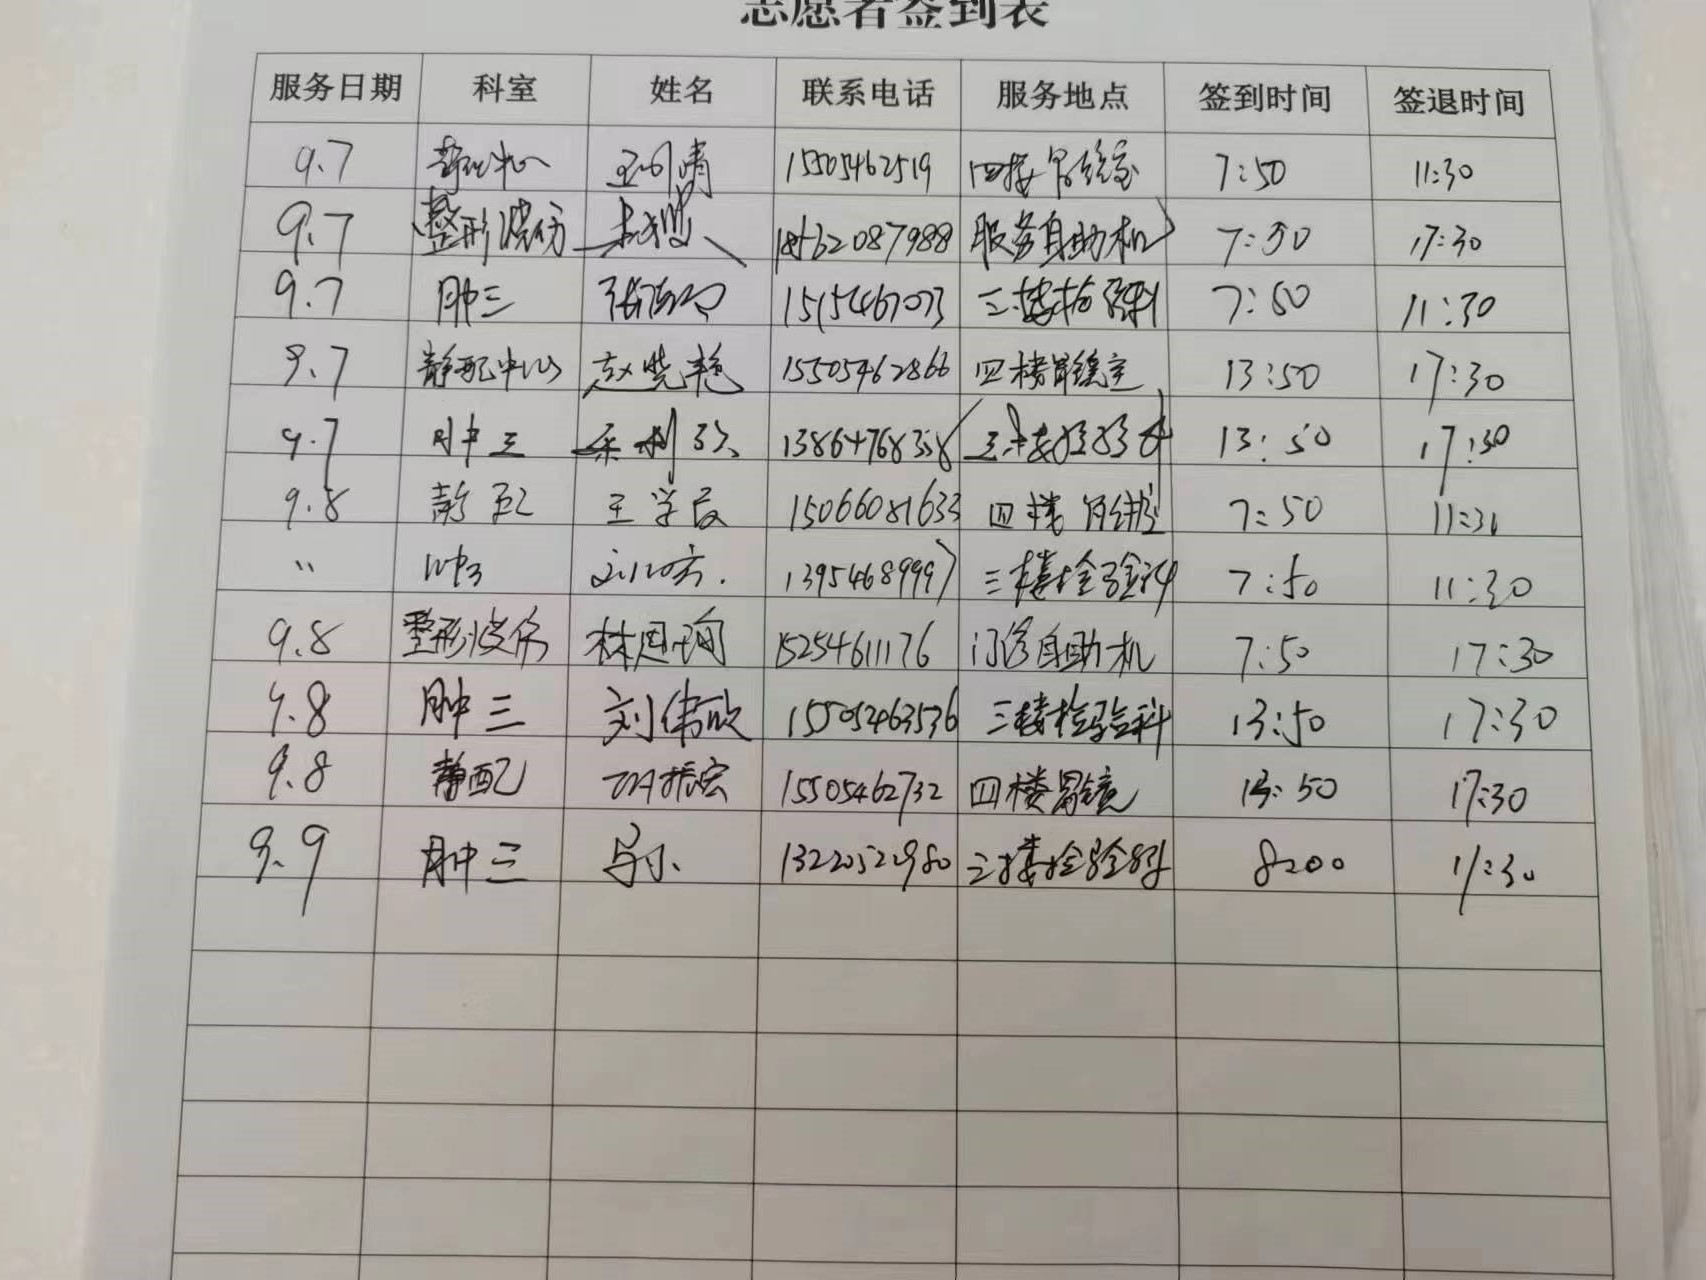 志愿者签到表
服务日期 科室 姓名 联系电话 服务地点 签到时间 签退时间
9.7 15505462519 四楼胃镜室 7:50 11:30
9.7 整形烧伤 18562087988 服务自助机 7:50 17:30
9.7 肿三 三楼检验科 7:50 11:30
9.7 静配中心 赵晓艳 15505462866 四楼胃镜室 13:50 17:30
9.7 肿三 三楼检验科 13:50 17:30
9.8 静配 王学友 15066081633 四楼胃镜室 7:50 11:30
〃 肿3 13954689997 三楼检验科 7:50 11:30
9.8 整形烧伤 林恩瑜 15254611176 门诊自助机 7:50 17:30
9.8 肿三 刘伟欣 15505463536 三楼检验科 13:50 17:30
9.8 静配 15505462732 四楼胃镜 13:50 17:30
9.9 肿三 13220522980 三楼检验科 8:00 11:30